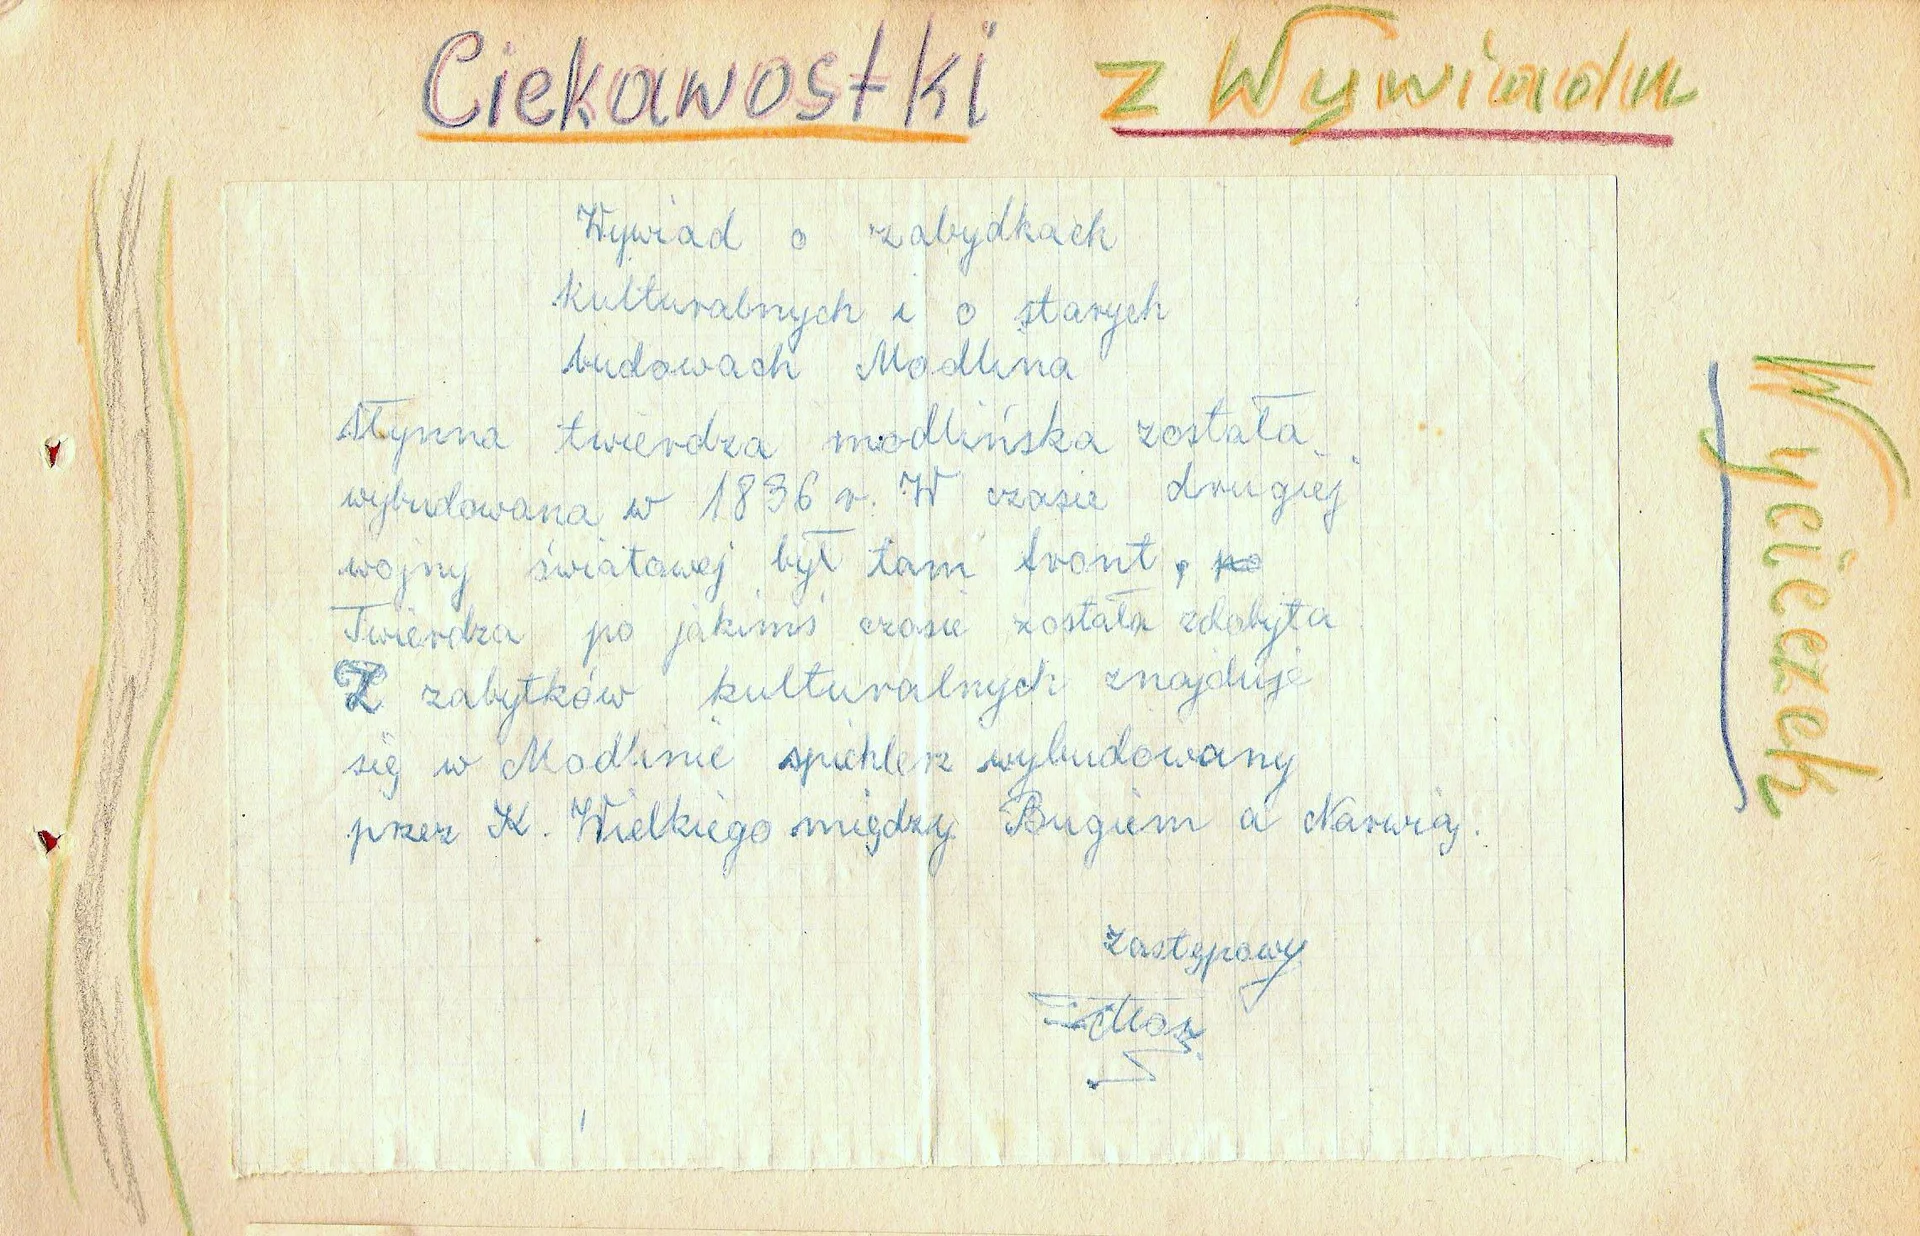 Ciekawostki z Wywiadu
Wycieczek
Wywiad o zabydkach
kulturabnych i o starych
budowach Modlina
słynna twierdza modlińska została
wybudowana w 1836 r. W czasie drugiej
wojny światowej był tam front,
Twierdza po jakimś czasie została zdobyta
Z zabytków kulturalnych znajduje
się w Modlinie spichlerz wybudowany
przez K. Wielkiego między Bugiem a Narwią.
zastępowy